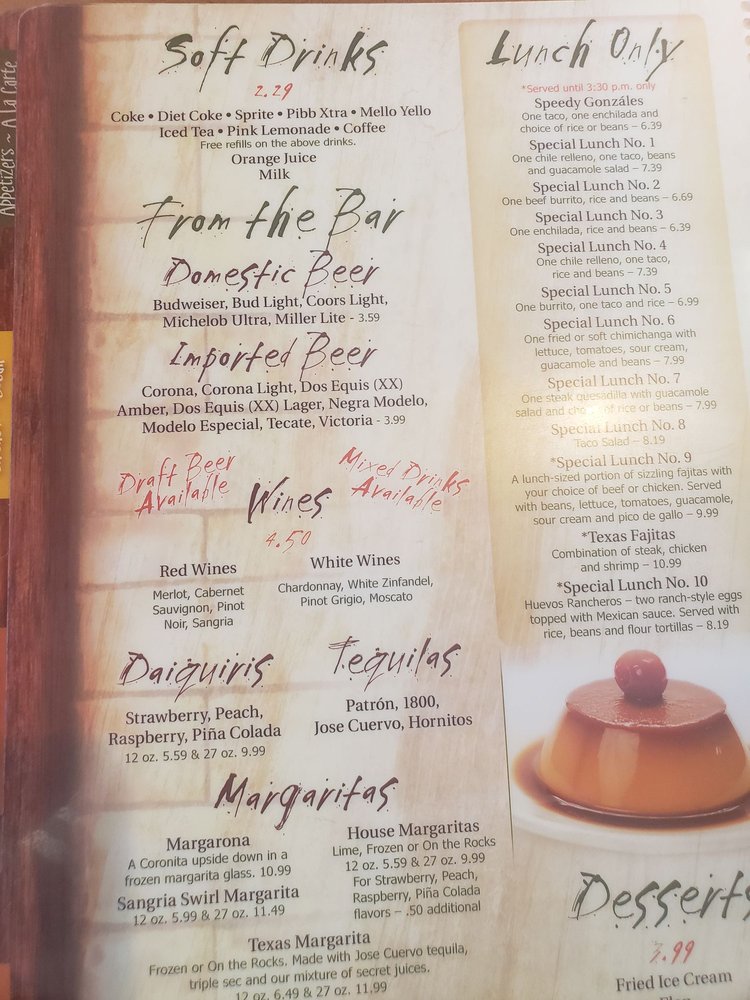 Appetizers ~ A La Carte
Soft Drinks
2.29
Coke • Diet Coke • Sprite • Pibb Xtra • Mello Yello
Iced Tea • Pink Lemonade • Coffee
Free refills on the above drinks.
Orange Juice
Milk
From the Bar
Domestic Beer
Budweiser, Bud Light, Coors Light,
Michelob Ultra, Miller Lite - 3.59
Imported Beer
Corona, Corona Light, Dos Equis (XX)
Amber, Dos Equis (XX) Lager, Negra Modelo,
Modelo Especial, Tecate, Victoria - 3.99
Draft Beer
Available
Mixed Drinks
Available
Wines
4.50
Red Wines
Merlot, Cabernet
Sauvignon, Pinot
Noir, Sangria
White Wines
Chardonnay, White Zinfandel,
Pinot Grigio, Moscato
Daiquiris
Strawberry, Peach,
Raspberry, Piña Colada
12 oz. 5.59 & 27 oz. 9.99
Tequilas
Patrón, 1800,
Jose Cuervo, Hornitos
Margaritas
Margarona
A Coronita upside down in a
frozen margarita glass. 10.99
Sangria Swirl Margarita
12 oz. 5.99 & 27 oz. 11.49
House Margaritas
Lime, Frozen or On the Rocks
12 oz. 5.59 & 27 oz. 9.99
For Strawberry, Peach,
Raspberry, Piña Colada
flavors – .50 additional
Texas Margarita
Frozen or On the Rocks. Made with Jose Cuervo tequila,
triple sec and our mixture of secret juices.
12 oz. 6.49 & 27 oz. 11.99
Lunch Only
*Served until 3:30 p.m. only
Speedy Gonzáles
One taco, one enchilada and
choice of rice or beans – 6.39
Special Lunch No. 1
One chile relleno, one taco, beans
and guacamole salad – 7.39
Special Lunch No. 2
One beef burrito, rice and beans – 6.69
Special Lunch No. 3
One enchilada, rice and beans – 6.39
Special Lunch No. 4
One chile relleno, one taco,
rice and beans – 7.39
Special Lunch No. 5
One burrito, one taco and rice – 6.99
Special Lunch No. 6
One fried or soft chimichanga with
lettuce, tomatoes, sour cream,
guacamole and beans – 7.99
Special Lunch No. 7
One steak quesadilla with guacamole
salad and choice of rice or beans – 7.99
Special Lunch No. 8
Taco Salad – 8.19
*Special Lunch No. 9
A lunch-sized portion of sizzling fajitas with
your choice of beef or chicken. Served
with beans, lettuce, tomatoes, guacamole,
sour cream and pico de gallo – 9.99
*Texas Fajitas
Combination of steak, chicken
and shrimp – 10.99
*Special Lunch No. 10
Huevos Rancheros – two ranch-style eggs
topped with Mexican sauce. Served with
rice, beans and flour tortillas – 8.19
Desserts
3.99
Fried Ice Cream